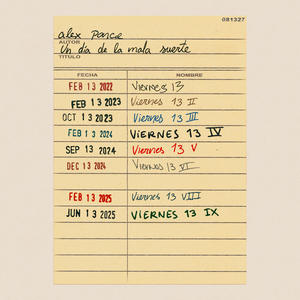 081327
alex ponce
AUTOR
Un día de la mala suerte
TÍTULO
FECHA NOMBRE
FEB 13 2022 Viernes 13
FEB 13 2023 Viernes 13 II
OCT 13 2023 Viernes 13 III
FEB 13 2024 VIERNES 13 IV
SEP 13 2024 Viernes 13 V
DEC 13 2024 Viernes 13 VI
FEB 13 2025 Viernes 13 VIII
JUN 13 2025 VIERNES 13 IX